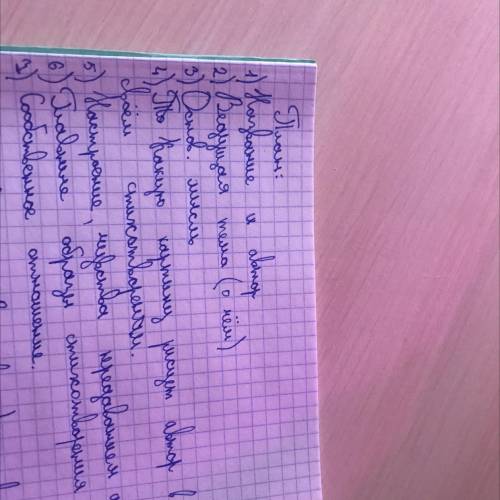 План:
1) Название и автор
2) Ведущая тема (о чём)
3) Основ. мысль
4) То какую картину рисует автор в
своём стихотворении.
5) Настроение, чувства
6) Главные образы стихотворения
7) Собственное отношение.